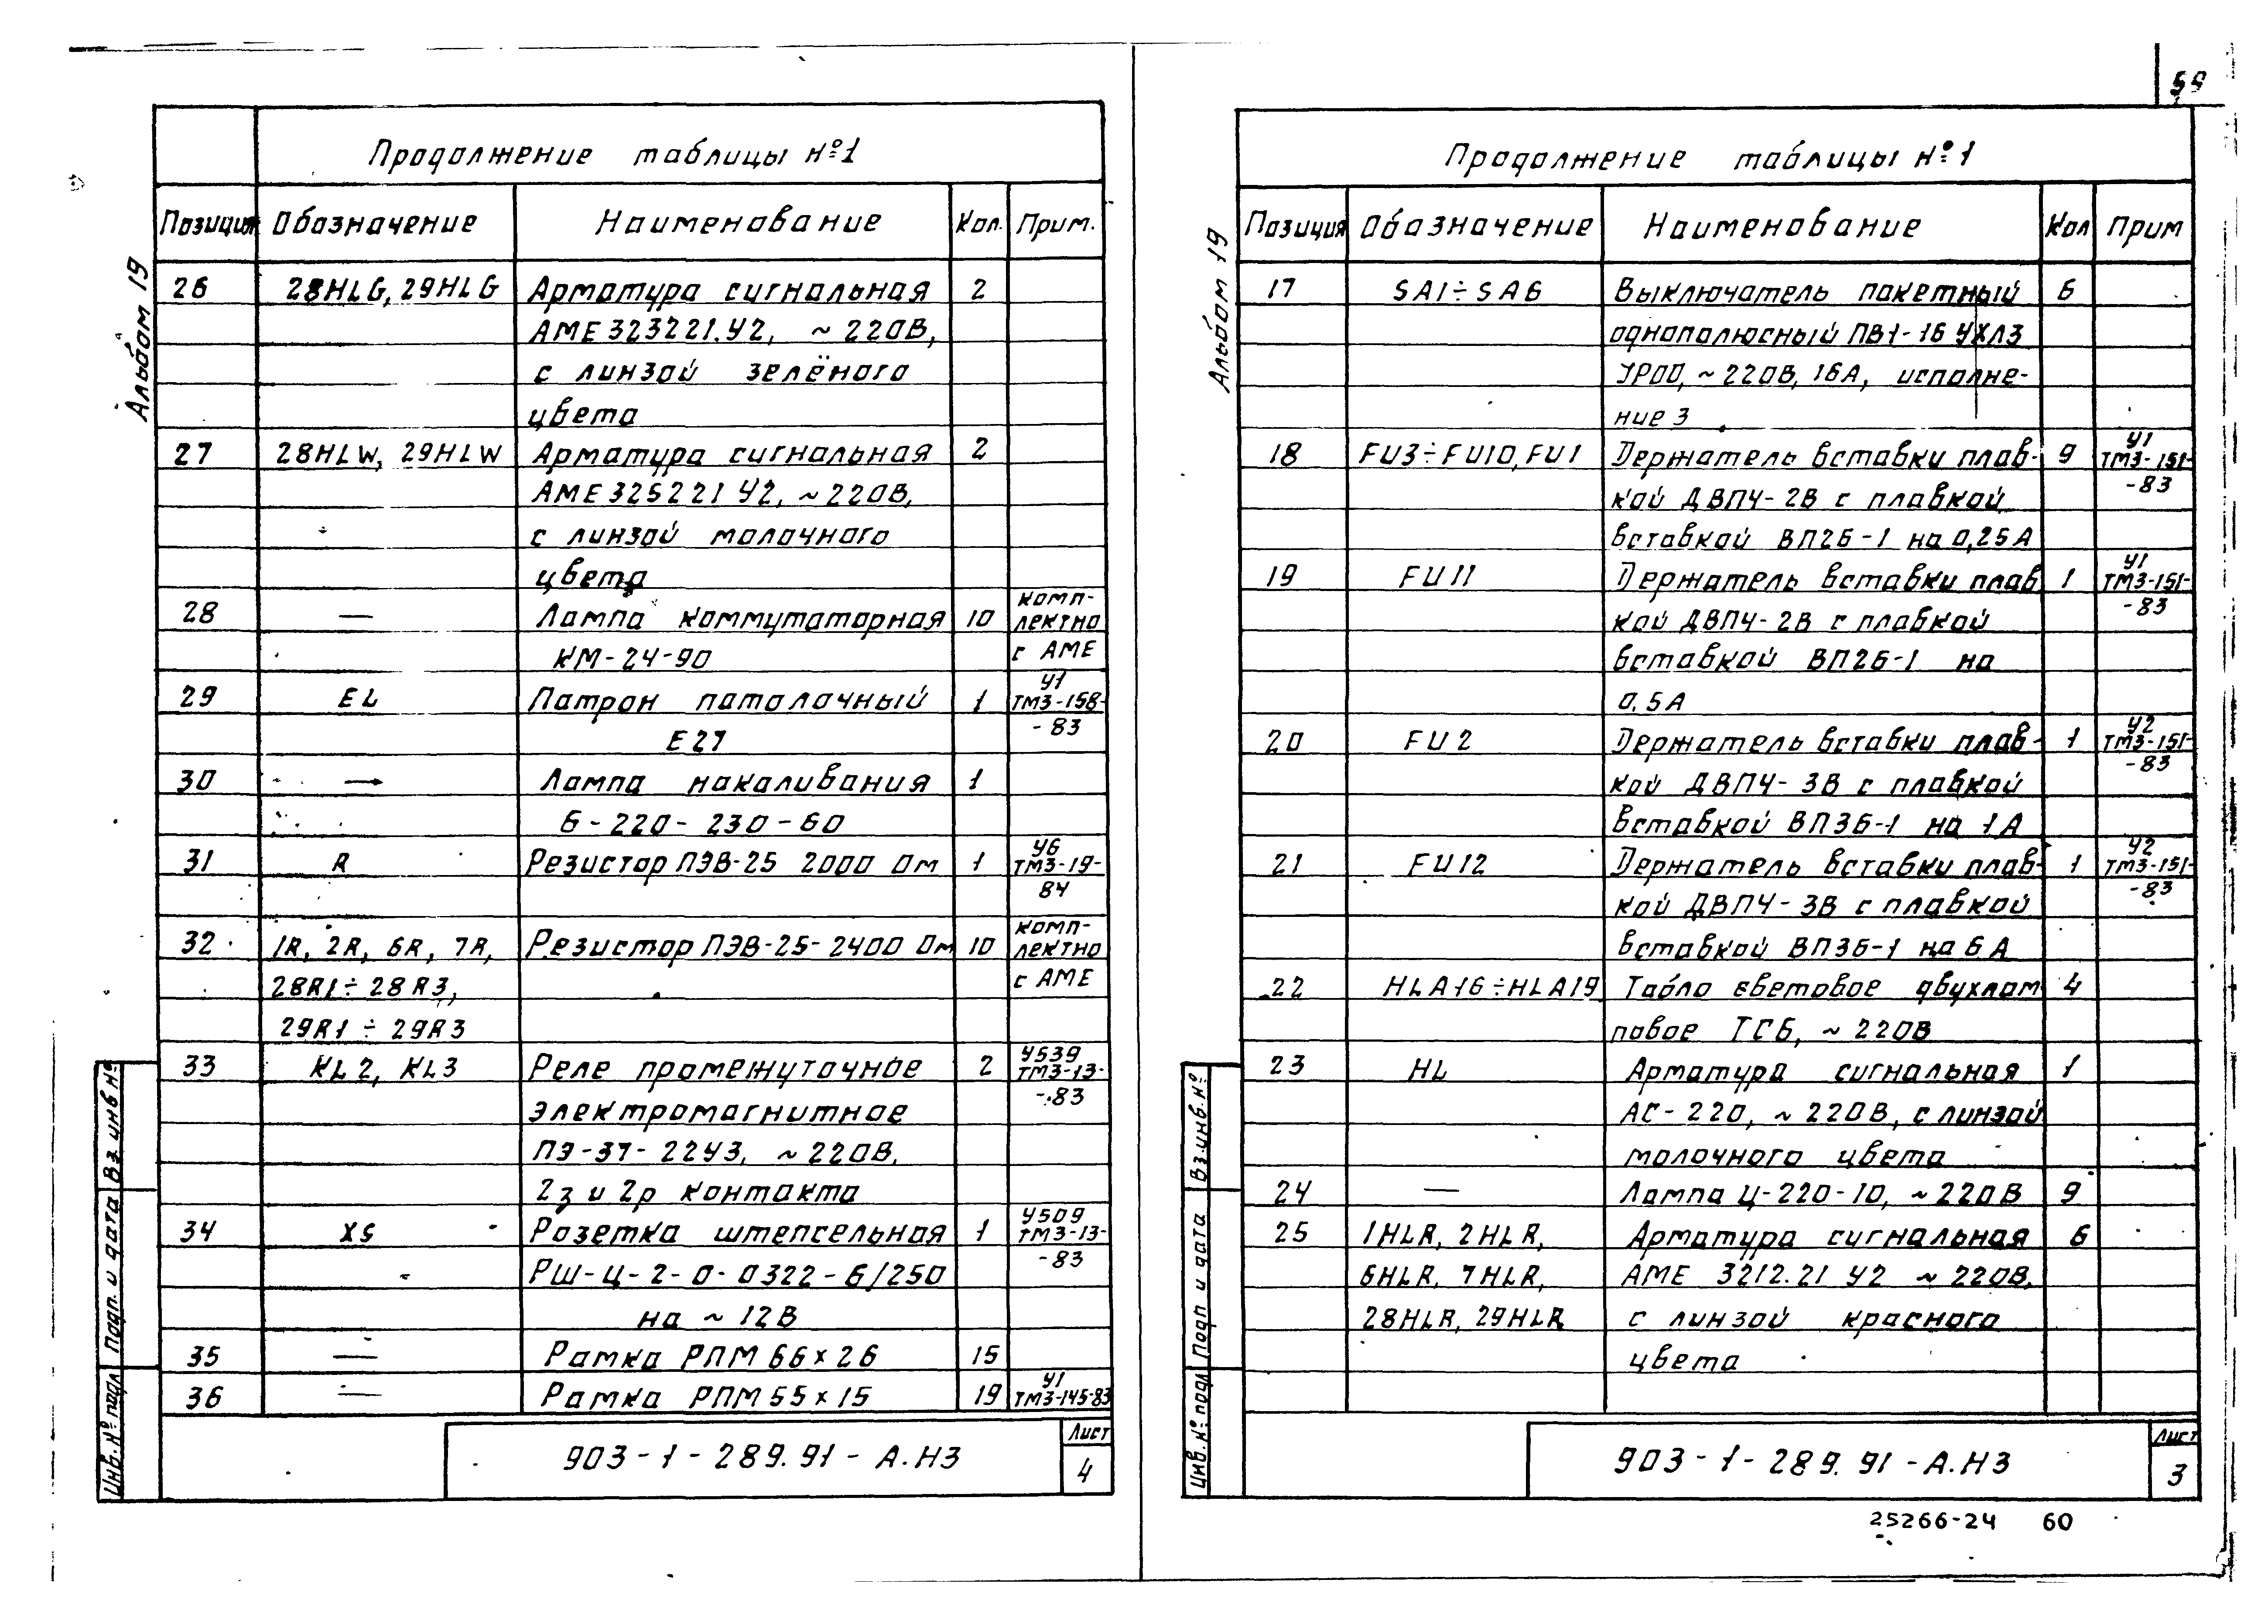 59
Продолжение таблицы №1
Позиция Обозначение Наименование Кол. Прим.
26 28HLG, 29HLG Арматура сигнальная 2
АМЕ 323221.У2, ~ 220В,
с линзой зелёного
цвета
27 28HLW, 29HLW Арматура сигнальная 2
АМЕ 325221 У2, ~ 220В,
с линзой молочного
цвета
28 — Лампа коммутаторная 10 комп-
лектно
КМ-24-90 с АМЕ
29 EL Патрон потолочный 1 У1
ТМ3-158-
Е27 -83
30 — Лампа накаливания 1
Б-220-230-60
31 R Резистор ПЭВ-25 2000 Ом 1 У6
ТМ3-19-
84
32 1R, 2R, 6R, 7R, Резистор ПЭВ-25-2400 Ом 10 комп-
лектно
28R1÷28R3, с АМЕ
29R1÷29R3
33 KL2, KL3 Реле промежуточное 2 У539
ТМ3-13-
электромагнитное -83
ПЭ-37-22У3, ~220В,
2з и 2р контакта
34 XS Розетка штепсельная 1 У509
ТМ3-13-
РШ-Ц-2-0-0322-6/250 -83
на ~ 12В
35 — Рамка РПМ 66×26 15
36 — Рамка РПМ 55×15 19 У1
ТМ3-145-83
903-1-289.91-А.НЗ
Лист
4
Альбом 19
Вз. инв №
Подп. и дата
Инв. № подл
Продолжение таблицы №1
Позиция Обозначение Наименование Кол Прим
17 SA1÷SA6 Выключатель пакетный 6
однополюсный ПВ1-16 УХЛ3
УР00, ~220В, 16А, исполне-
ние 3
18 FU3÷FU10, FU1 Держатель вставки плав- 9 У1
ТМ3-151-
кой ДВП4-2В с плавкой -83
вставкой ВП2Б-1 на 0,25А
19 FU11 Держатель вставки плав 1 У1
ТМ3-151-
кой ДВП4-2В с плавкой -83
вставкой ВП2Б-1 на
0,5А
20 FU2 Держатель вставки плав- 1 У2
ТМ3-151-
кой ДВП4-3В с плавкой -83
вставкой ВП3Б-1 на 1А
21 FU12 Держатель вставки плав- 1 У2
ТМ3-151-
кой ДВП4-3В с плавкой -83
вставкой ВП3Б-1 на 6А
22 HLA16÷HLA19 Табло световое двухлам 4
повое ТСБ, ~ 220В
23 HL Арматура сигнальная 1
АС-220, ~220В, с линзой
молочного цвета
24 — Лампа Ц-220-10, ~220В 9
25 1HLR, 2HLR, Арматура сигнальная 6
6HLR, 7HLR, АМЕ 3212.21 У2 ~ 220В,
28HLR, 29HLR с линзой красного
цвета
903-1-289.91-А.НЗ
Лист
3
Альбом 19
Вз.инв.№
Подп и дата
Инв.№ подл
25266-24 60